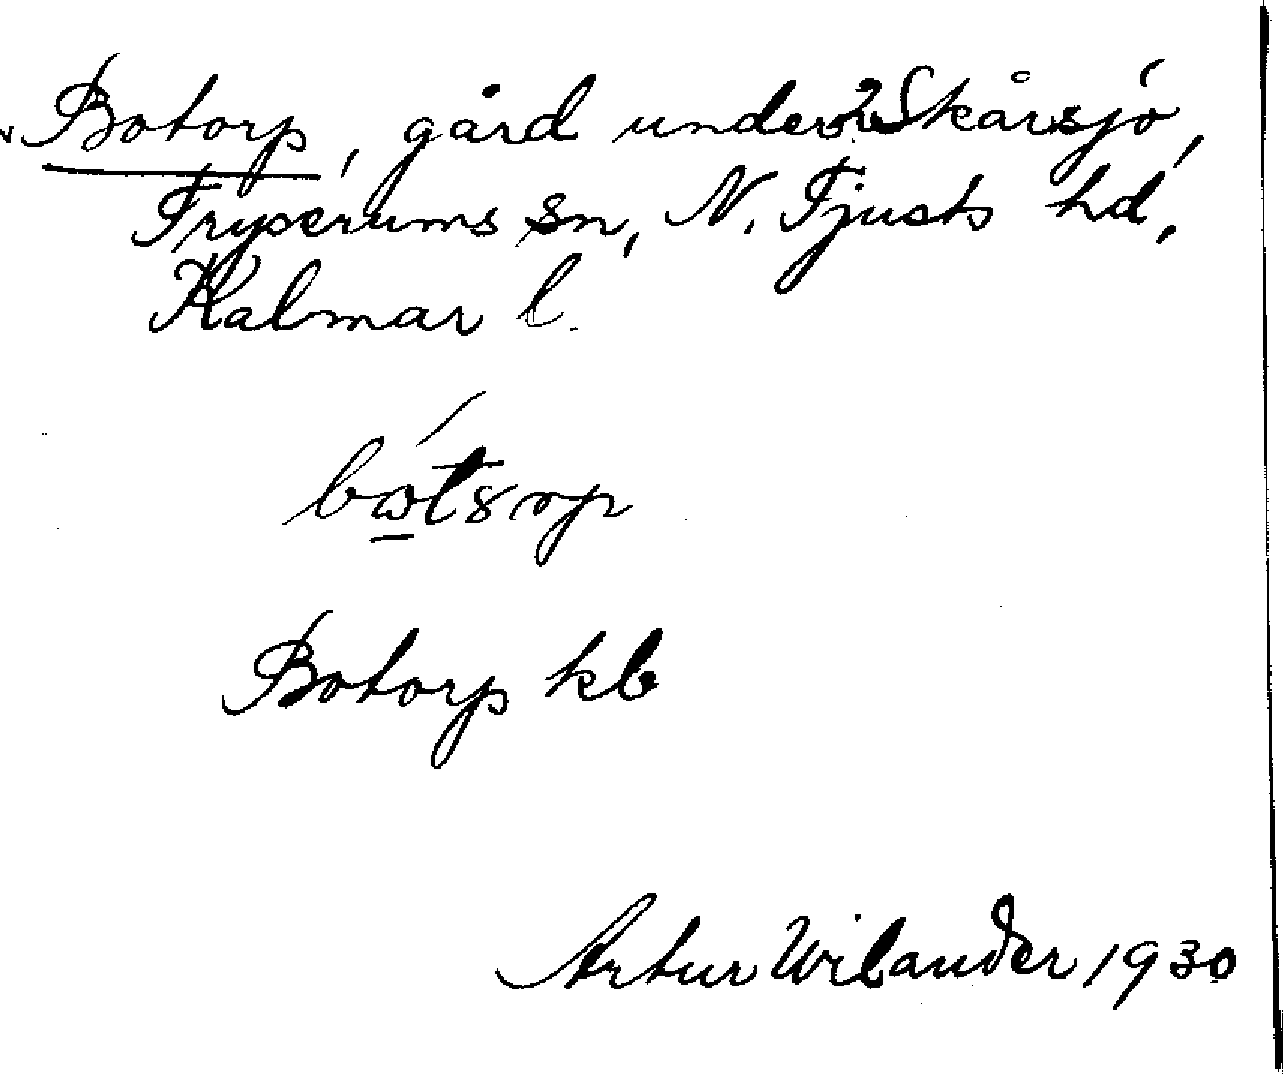 Botorp, gård under 2 Skårsjö,
Fryxerums sn, N. Tjusts hd,
Kalmar l.
Botorp kb
Artur Wilander 1930